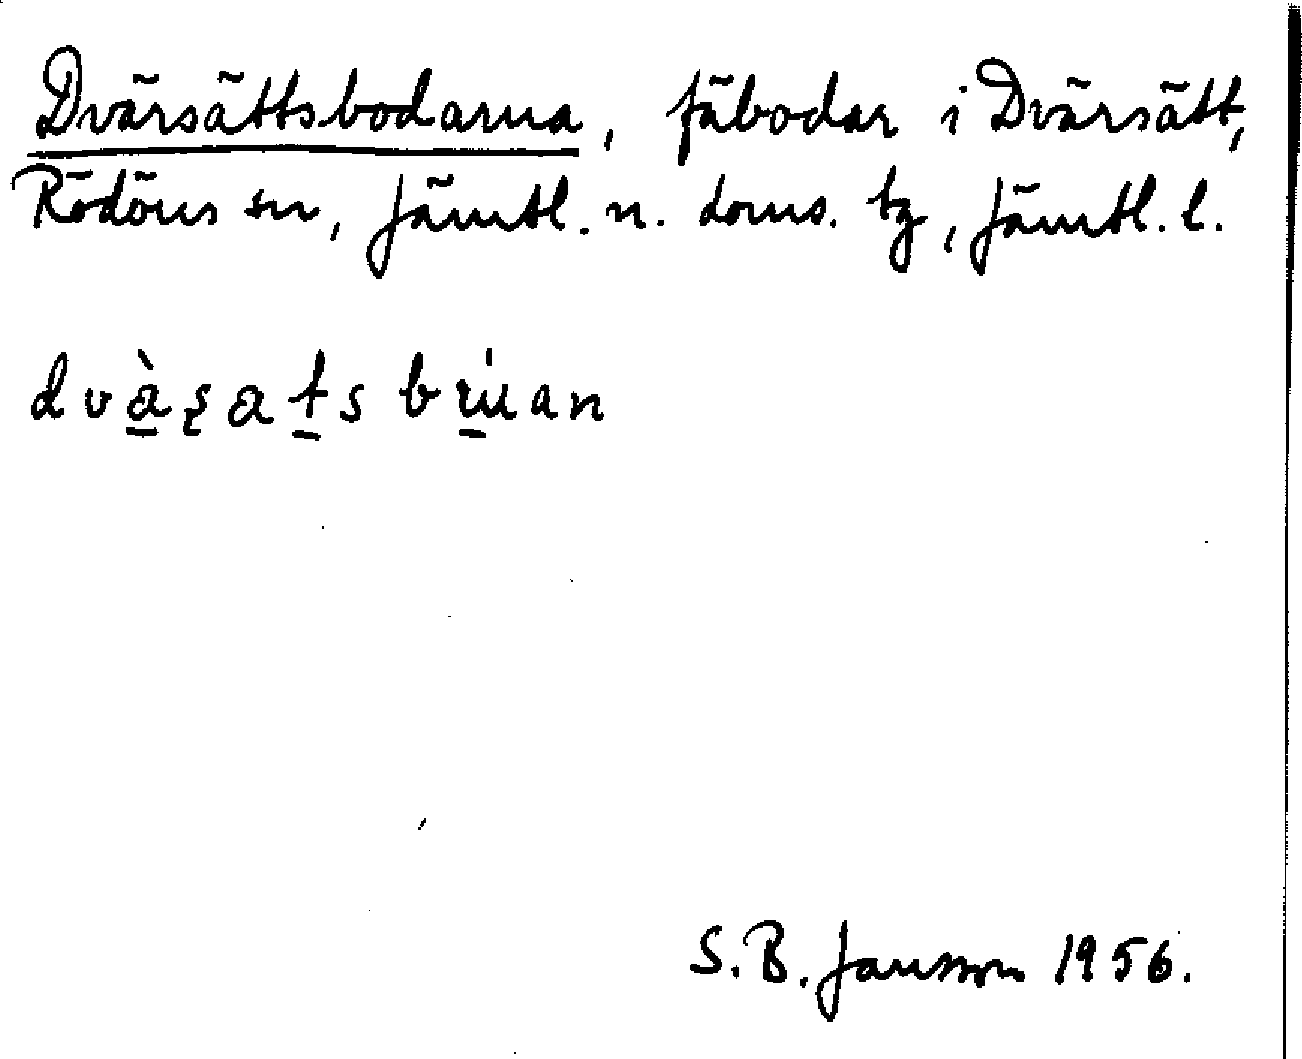 Dvärsättsbodarna, fäbodar i Dvärsätt,
Rödöns sn, Jämtl. n. doms. tg, Jämtl. l.
dvàʂats bu̇an
S. B. Jansson 1956.